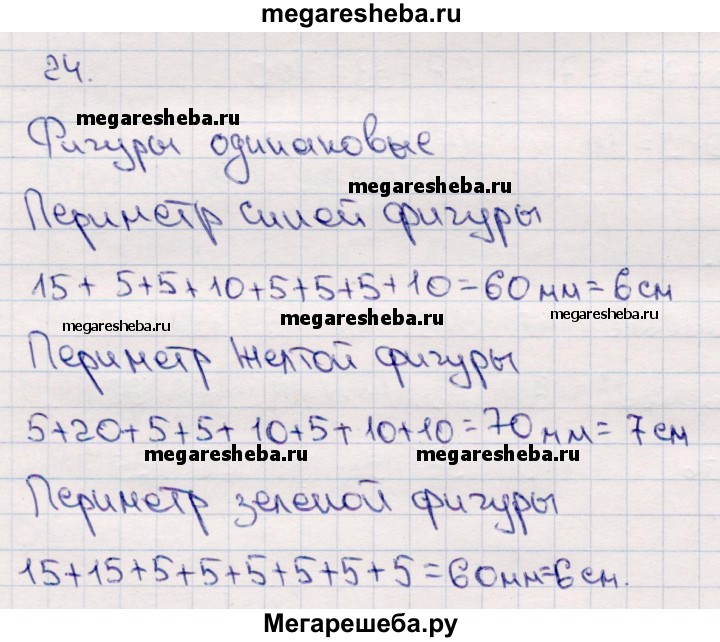 megaresheba.ru
24.
megaresheba.ru
Фигуры одинаковые
megaresheba.ru
Периметр синей фигуры
15+ 5+5+10+5+5+5+10=60мм=6см
megaresheba.ru megaresheba.ru megaresheba.ru
Периметр желтой фигуры
5+20+5+5+ 10+5+10+10=70мм=7см
megaresheba.ru megaresheba.ru
Периметр зеленой фигуры
15+15+5+5+5+5+5+5=60мм=6см.
Мегарешеба.ру